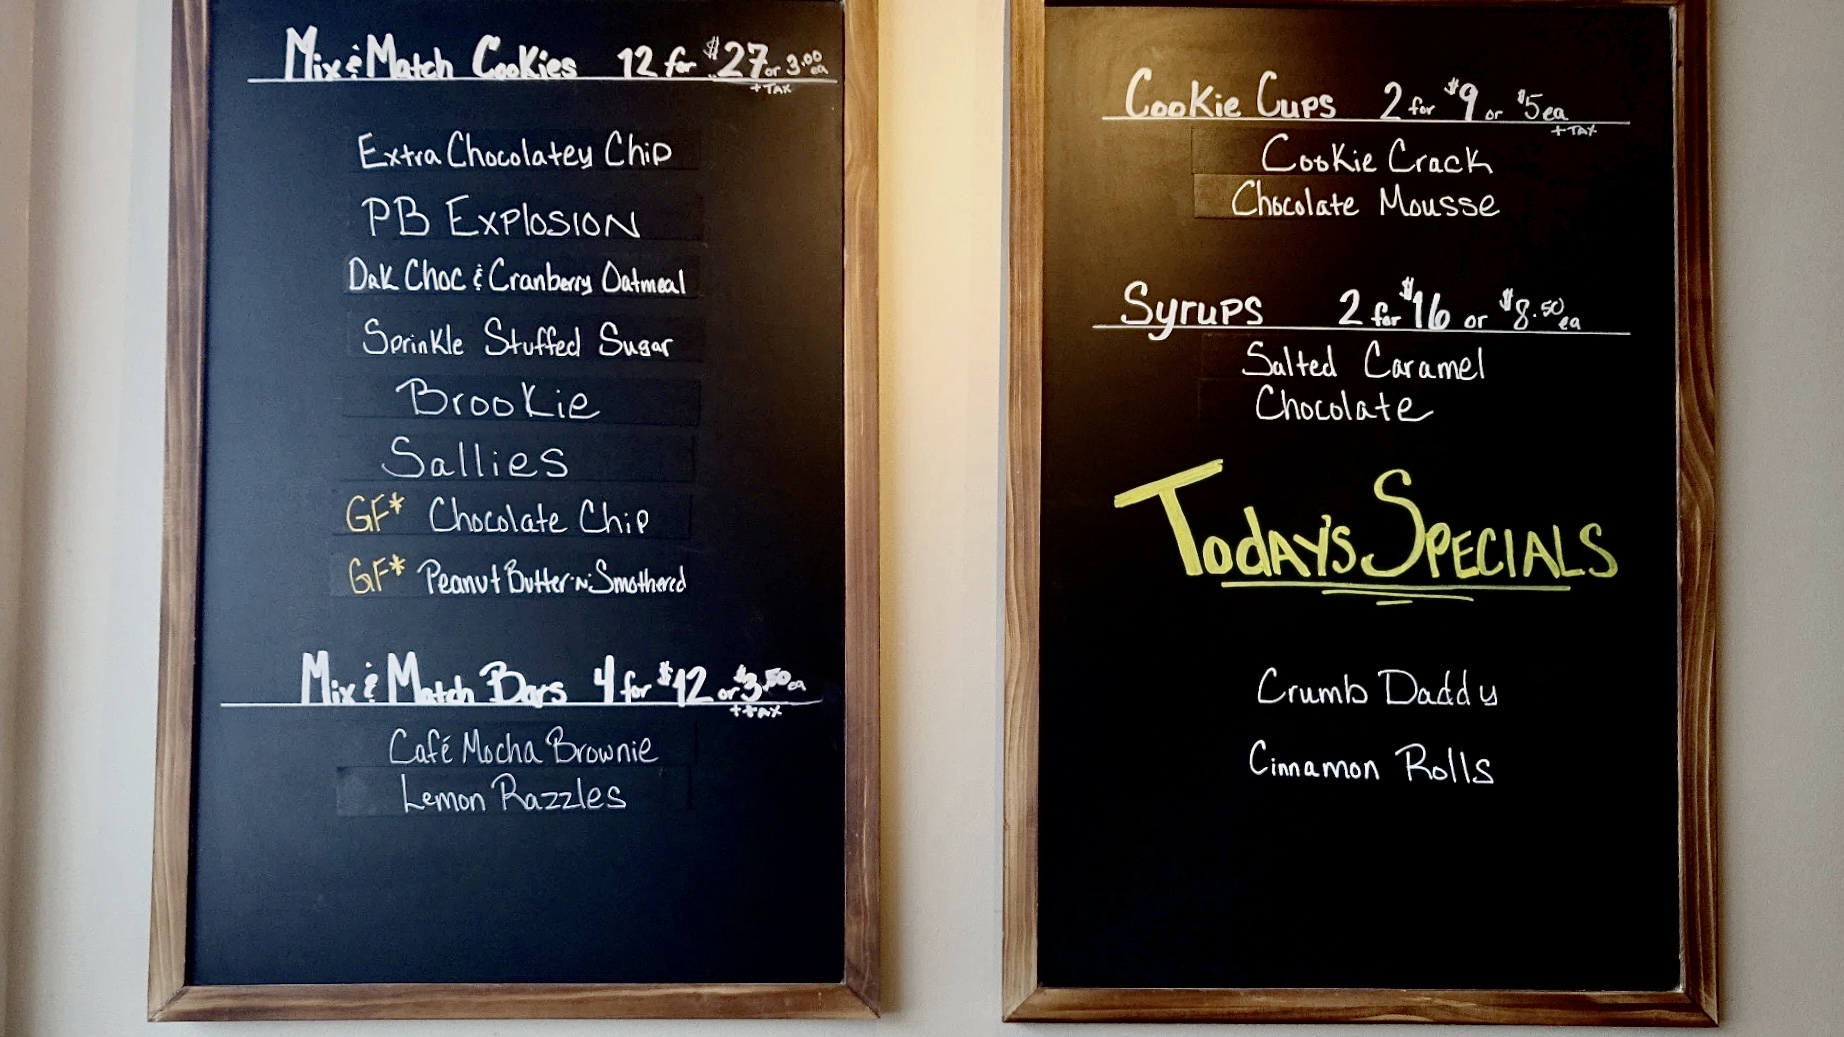 Mix & Match Cookies 12 for $27 or 3.00 ea
+ TAX
Extra Chocolatey Chip
PB Explosion
Dak Choc & Cranberry Oatmeal
Sprinkle Stuffed Sugar
Brookie
Sallies
GF* Chocolate Chip
GF* Peanut Butter·N·Smothered
Mix & Match Bars 4 for $12 or $3.50 ea
++ax
Café Mocha Brownie
Lemon Razzles
Cookie Cups 2 for $9 or $5 ea
+ TAX
Cookie Crack
Chocolate Mousse
Syrups 2 for $16 or $8.50 ea
Salted Caramel
Chocolate
Today's Specials
Crumb Daddy
Cinnamon Rolls